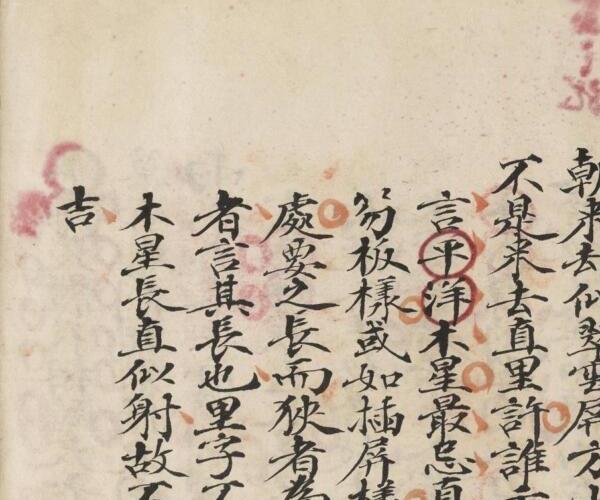 朝來去似翠雲屏方
不是來去直里許誰
言平洋木星最忌直
笏板樣或如插屏樣
處要之長而狹者為
者言其長也里字不
木星長直似射故不
吉